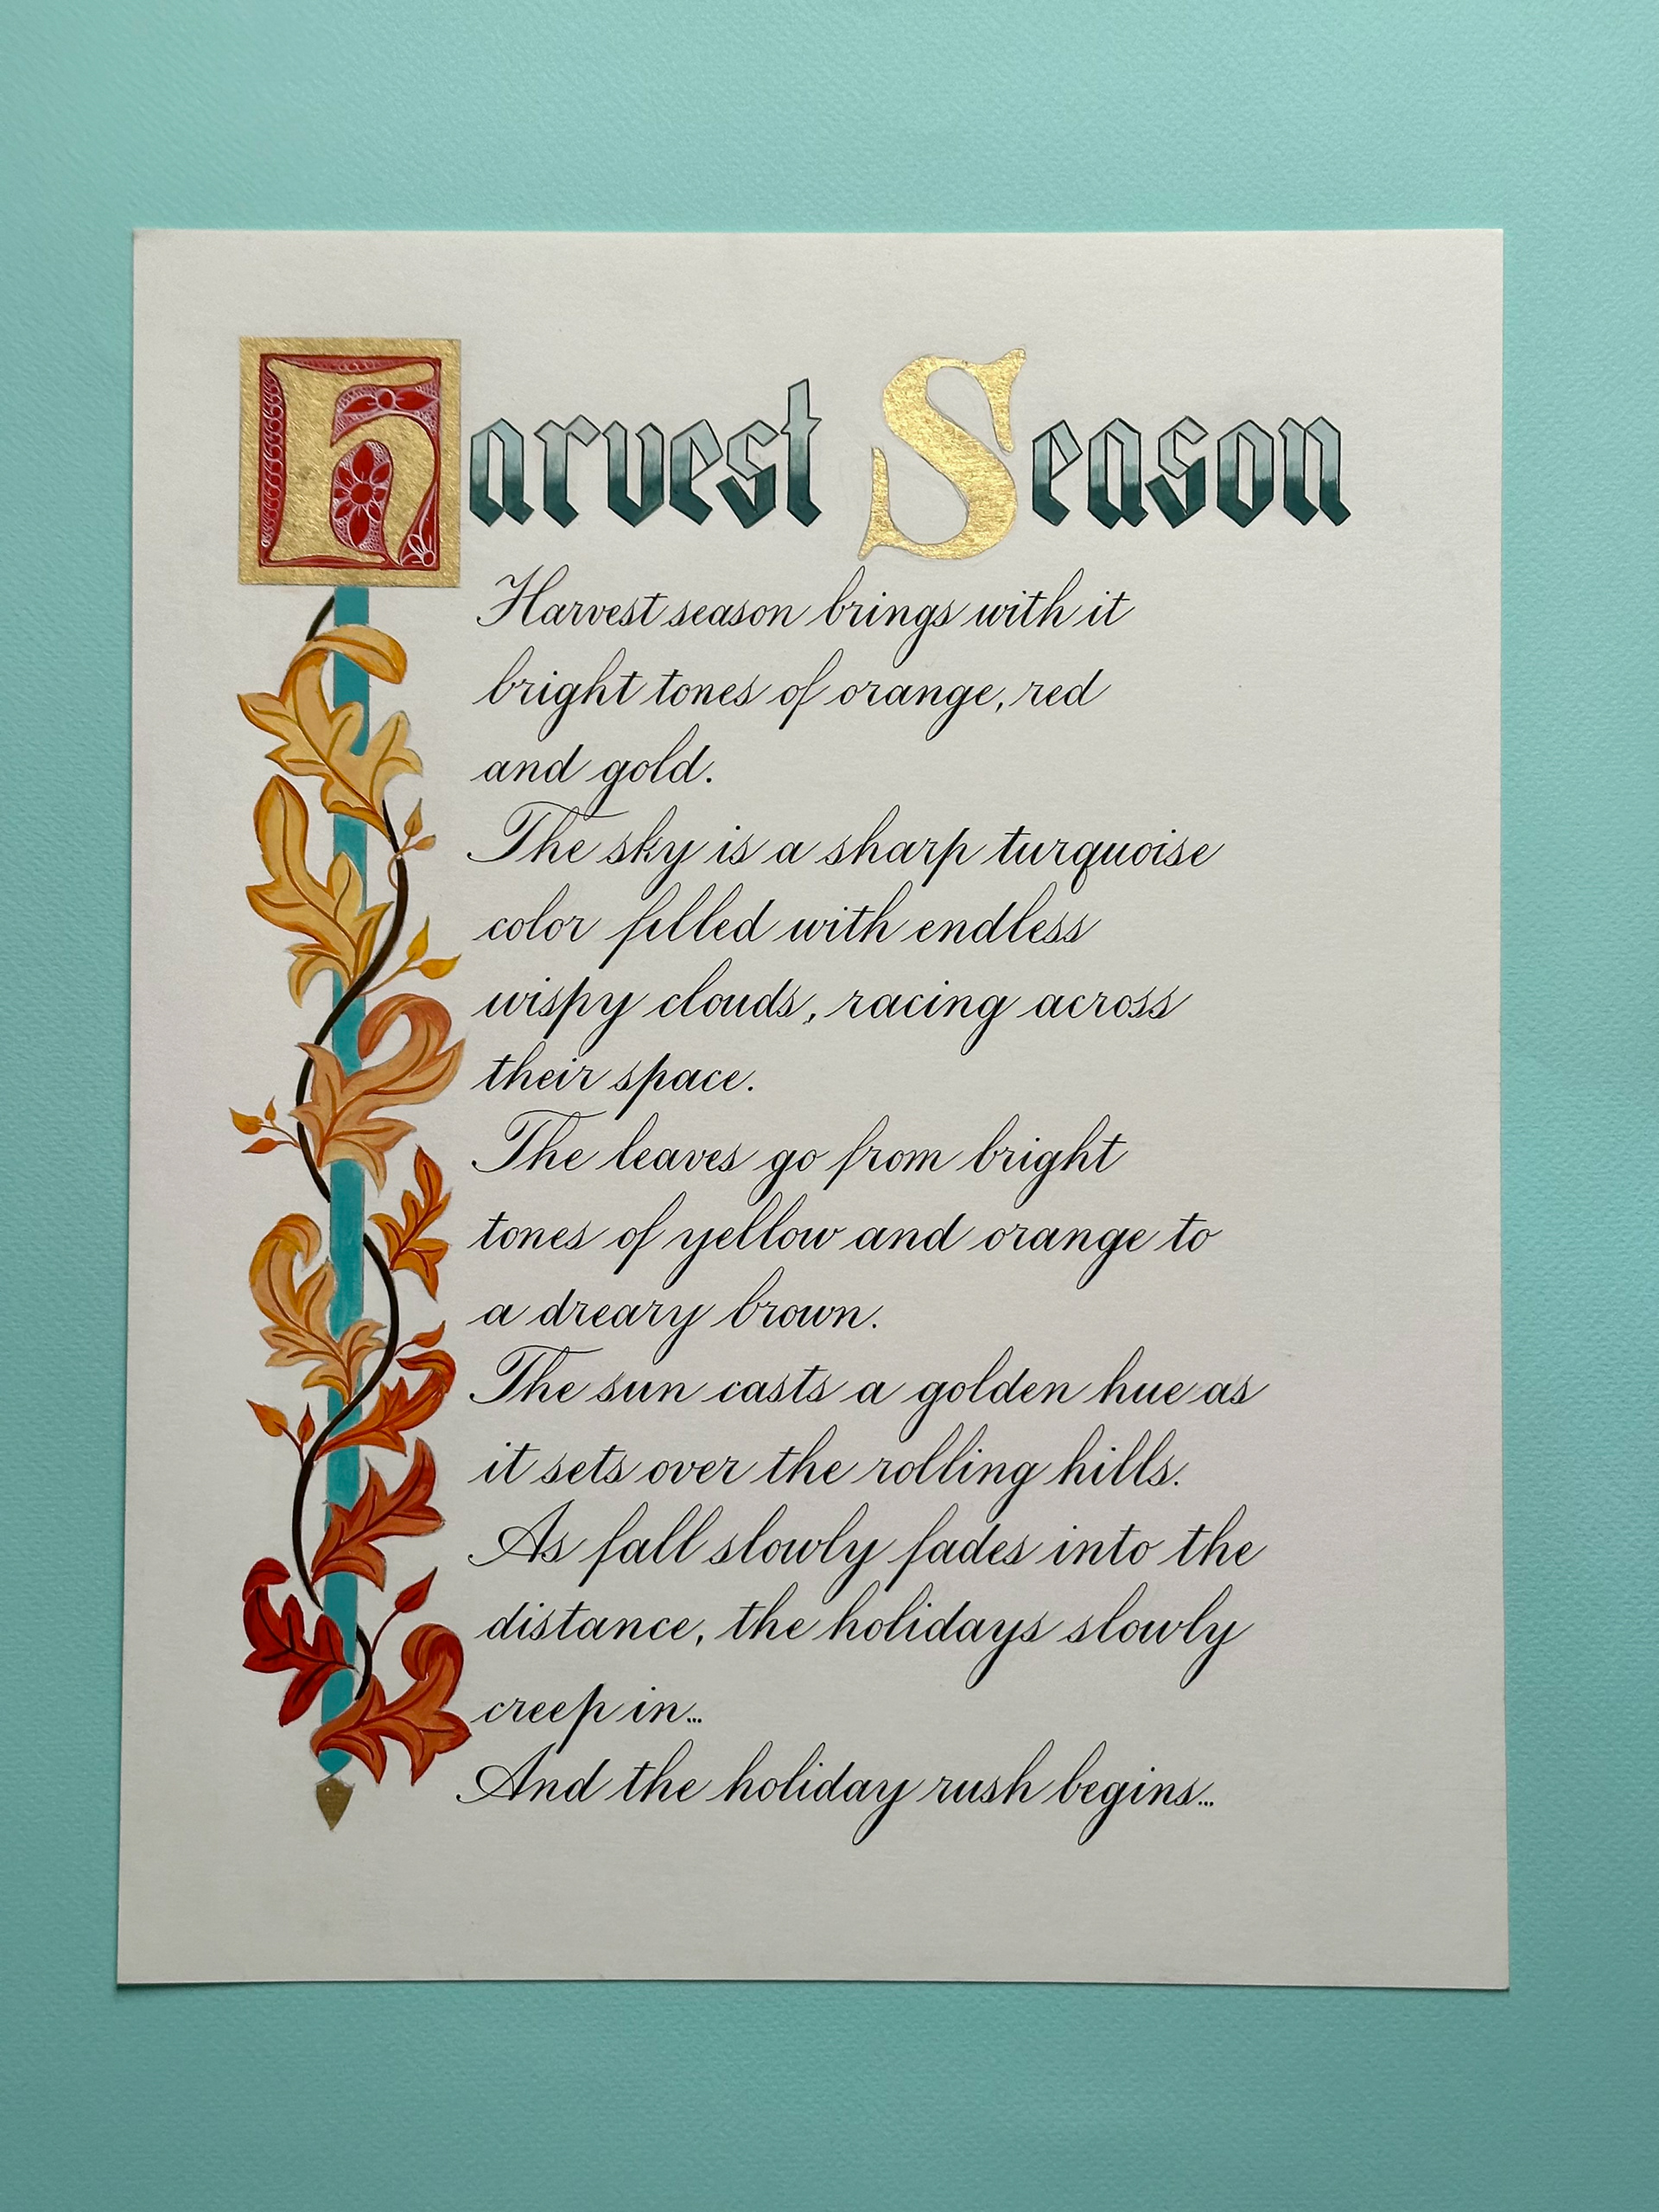 Harvest Season
Harvest season brings with it
bright tones of orange, red
and gold.
The sky is a sharp turquoise
color filled with endless
wispy clouds, racing across
their space.
The leaves go from bright
tones of yellow and orange to
a dreary brown.
The sun casts a golden hue as
it sets over the rolling hills.
As fall slowly fades into the
distance, the holidays slowly
creep in...
And the holiday rush begins...